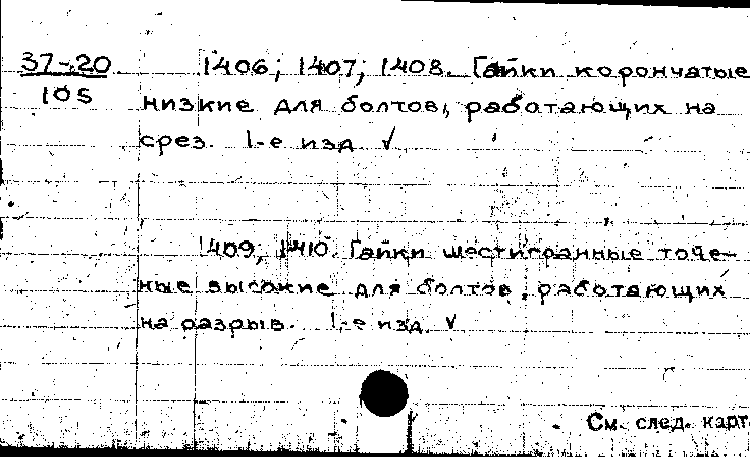 37-20 1406; 1407; 1408. Гайки корончатые
105
низкие для болтов, работающих на
срез. 1-е изд. √
1409; 1410. Гайки шестигранные точе-
ные высокие для болтов, работающих
на разрыв. 1-е изд. √
См. след. карт